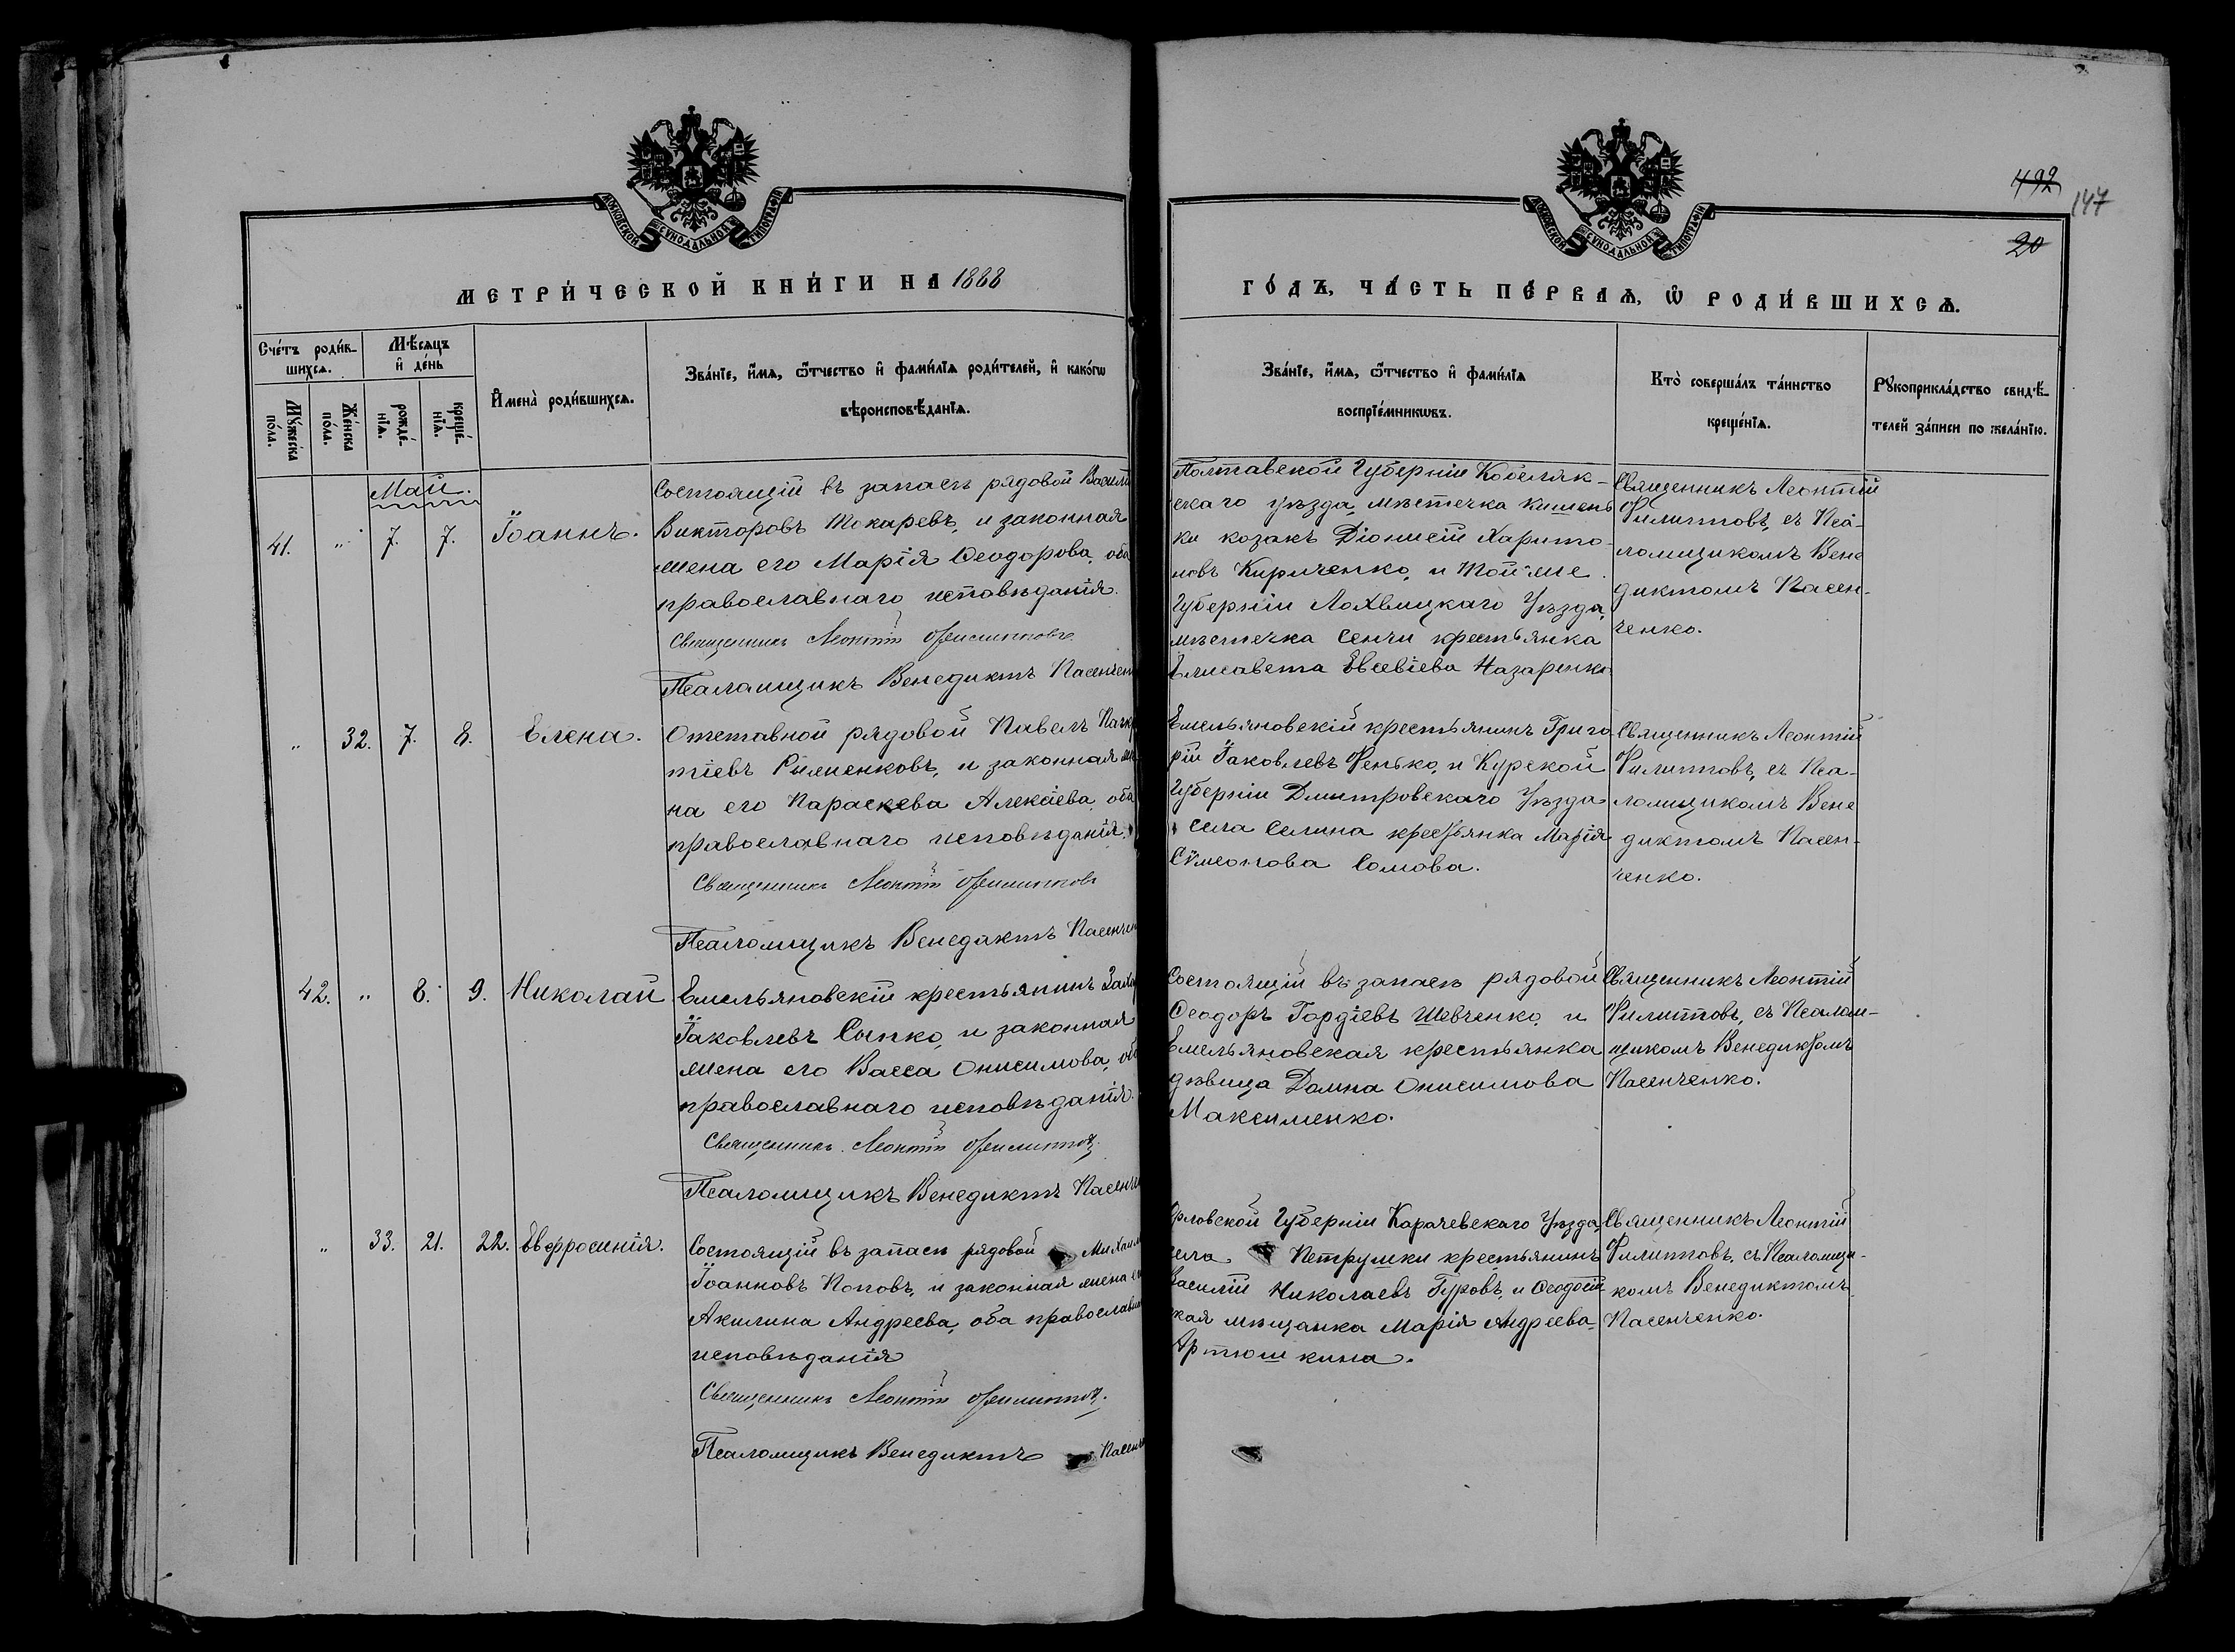 МОСКОВСКОЙ СѴНОДАЛЬНОЙ ТИПОГРАФІИ
МЕТРИ́ЧЕСКОЙ КНИ́ГИ НА 1888
Сче́тъ роди́в-
шихсѧ.
Мѣ́сѧцъ
и҆ де́нь
Мꙋ́жеска
по́ла.
Же́нска
по́ла.
рожде́-
нїѧ.
креще́-
нїѧ.
И҆мена̀ роди́вшихсѧ.
Зва́нїе, и҆́мѧ, ѻ҆́тчество и҆ фами́лїѧ роди́телей, и҆ како́гѡ
вѣроисповѣ́данїѧ.
Май.
41. " 7. 7. Іоаннъ.
Состоящій въ запасѣ рядовой
Викторовъ Токаревъ, и законная
жена его Марія Ѳеодорова, оба
православнаго исповѣданія.
Священникъ Леонтій Филипповъ.
Псаломщикъ Венедиктъ
" 32. 7. 8. Елена.
Отставной рядовой Павелъ
тіевъ и законная же
на его Параскева Алексіева, оба
православнаго исповѣданія.
Священникъ Леонтій Филипповъ
Псаломщикъ Венедиктъ
42. " 8. 9. Николай
Емельяновскій крестьянинъ
Іаковлевъ Сипко, и законная
жена его Васса Онисимова, оба
православнаго исповѣданія.
Священникъ Леонтій Филипповъ.
Псаломщикъ Венедиктъ
" 33. 21. 22. Евфросинія.
Состоящій въ запасѣ рядовой
Іоанновъ Поповъ, и законная жена
Акилина Андреева, оба
исповѣданія
Священникъ Леонтій Филипповъ.
Псаломщикъ Венедиктъ
МОСКОВСКОЙ СѴНОДАЛЬНОЙ ТИПОГРАФІИ
492
147
20
ГО́ДЪ, ЧА́СТЬ ПЕ́РВАѦ, Ѡ҆ РОДИ́ВШИХСѦ.
Зва́нїе, и҆́мѧ, ѻ҆́тчество и҆ фами́лїѧ
воспрїе́мникѡвъ.
Кто̀ соверша́лъ та́инство
креще́нїѧ.
Рꙋкоприкла́дство свидѣ́-
телей за́писи по жела́нїю.
Полтавской Губерніи Кобеляк-
скаго уѣзда, мѣстечка Кишень
ки козакъ Діонисій Харито-
новъ Кириченко, и той-же
Губерніи Лохвицкаго Уѣзда,
мѣстечка Сенчи крестьянка
Елисавета Евсевіева Назаренко.
Священникъ Леонтій
Филипповъ, съ Пса-
ломщикомъ Вене
диктомъ Пасен-
ченко.
Емельяновскій крестьянинъ Григо
рій Іаковлевъ Фенько, и Курской
Губерніи Дмитровскаго Уѣзда
села Селина крестьянка Марія
Сѵмеонова Сомова.
Священникъ Леонтій
Филипповъ, съ Пса-
ломщикомъ Вене
диктомъ Пасен-
ченко.
Состоящій въ запасѣ рядовой
Ѳеодоръ Гордіевъ Шевченко, и
Емельяновская крестьянка
дѣвица Домна Онисимова
Максименко.
Священникъ Леонтій
Филипповъ, съ Псалом-
щикомъ Венедиктомъ
Пасенченко.
Орловской Губерніи Карачевскаго Уѣзда,
села Петрушки крестьянинъ
Василій Николаевъ Гуровъ, и Ѳеодосій
ская мѣщанка Марія Андреева
Артюшкина.
Священникъ Леонтій
Филипповъ, съ Псаломщи-
комъ Венедиктомъ
Пасенченко.